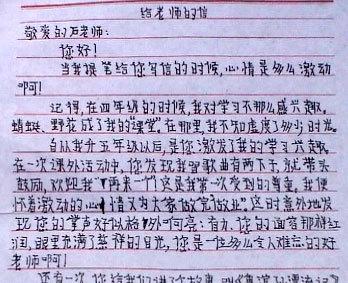 给老师的信
敬爱的石老师:
您好!
当我提笔给您写信的时候,心情是多么激动
啊!
记得,在四年级的时候,我对学习不那么感兴趣。
蜻蜓、野花成了我的"课堂"。在那里,我不知虚度了多少时光。
自从我升五年级以后,是您激发了我的学习兴趣。
在一次课外活动中,您发现我唱歌曲有两下子,就带头
鼓励,欢迎我"再来一个"这是我第一次受到的尊重。我便
怀着激动的心情又为大家做完做业"这时意外地发
现您的掌声好似格外响亮:有力,您的面容那样红
润,眼里充满了慈祥的目光,您是一位多么令人难忘的好
老师啊!
还有一次,您给我们讲了故事,叫《鲁滨逊漂流记》